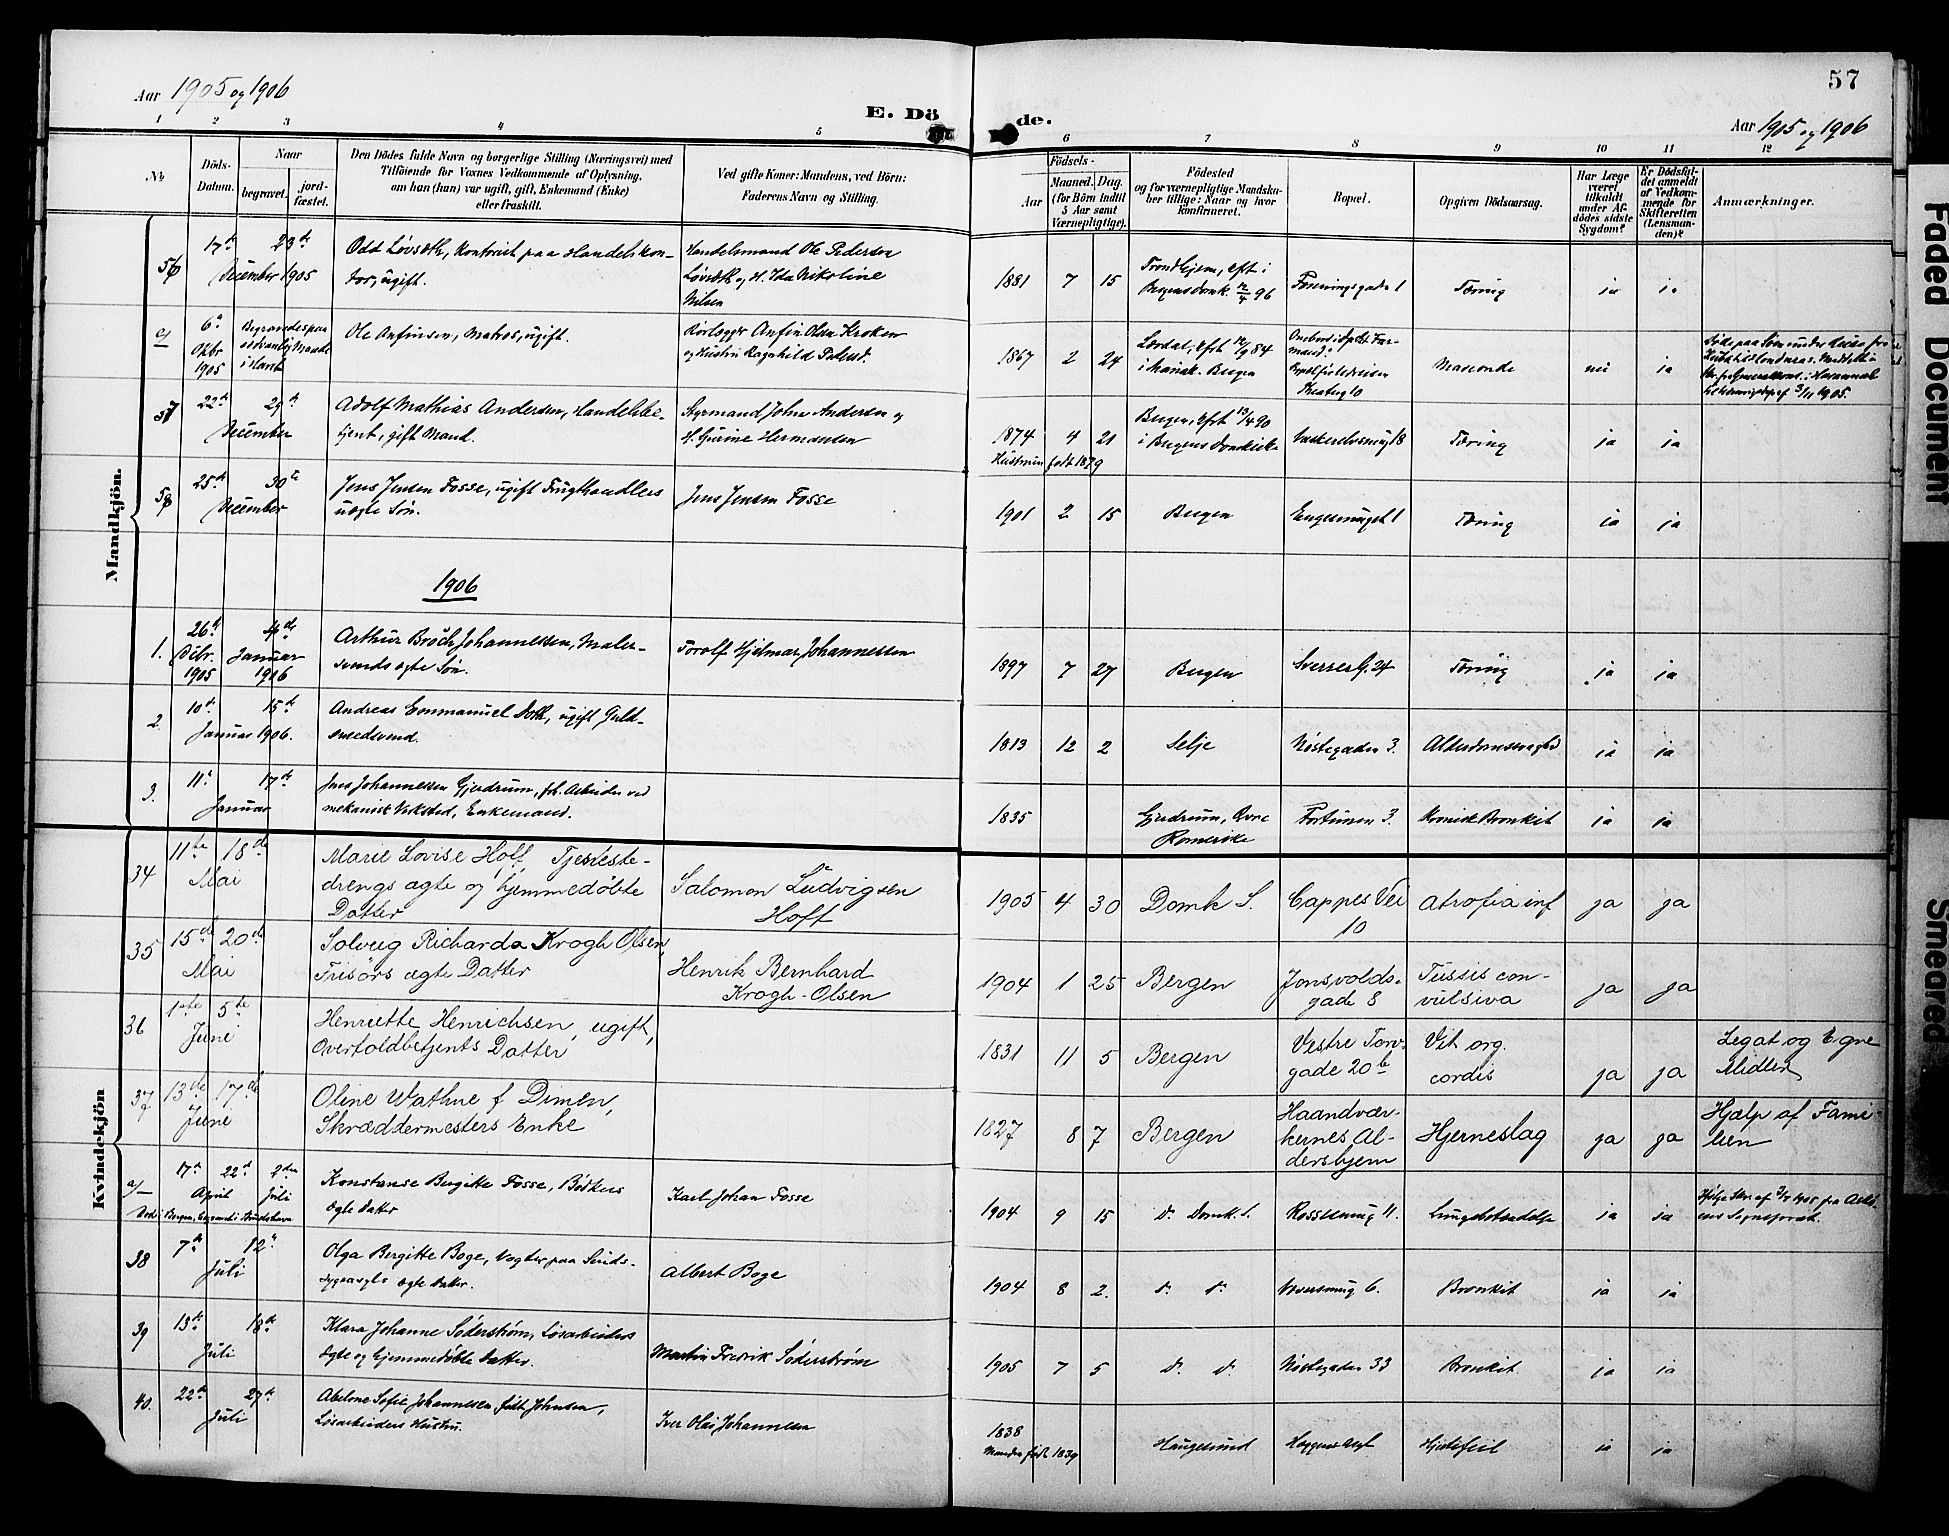 Aar 1905 og 1906
E. Dö
de.
57
Aar 1905 og 1906
1 2 3 4 5 6 7 8 9 10 11 12
№
Döds-
Datum.
Naar
begravet.
jord-
fæstet.
Den Dödes fulde Navn og borgerlige Stilling (Næringsvei) med
Tilföiende for Voxnes Vedkommende af Oplysning,
om han (hun) var ugift, gift, Enkemand (Enke)
eller fraskilt.
Ved gifte Koner: Mandens, ved Börn:
Faderens Navn og Stilling.
Födsels-
Aar
Maaned. Dag.
(for Börn indtil
5 Aar samt
Værnepligtige).
Födested
og for værnepligtige Mandska-
ber tillige: Naar og hvor
konfirmeret.
Bopæl.
Opgiven Dödsaarsag.
Har Læge
været
tilkaldt
under Af-
dödes sidste
Sygdom?
Er Dödsfal-
det anmeldt
af Vedkom-
mende for
Skifteretten
(Lensman-
den)?
Anmærkninger.
Mandkjön.
17de 23de
December 1905
Odd Løvseth, Kontorist paa Handelskon-
tor, ugift.
Handelsmand Ole Pedersen
Løvseth og H. Ida Nikoline
Nilsen
1881 7 15
Trondhjem, cft i
Bergens Domk. 96
Foreningsgaden 1
Tæring
ja ja
6te
Okbr
1905
Begravedes paa
sædvanlig Maade
i Havet
Ole Anfinsen, Matros, ugift.
Anfin Olsen Kroken
og Hustru Ragnhild Pedersd.
1867 2 24
Lærdal, cft 84
Bergen
nei ja
57
22de 29de
December
Adolf Mathias Andersen, Handelsbe-
tjent, gift Mand.
Styrmand John Andersen og
H. Gurine Hermansen
1874 4 21
Hustruen født 1879
Bergen, cfrt 13/4 90
i Bergens Domkirke
Tæring
ja ja
58
25de 30te
December
Jens Jensen Fosse, ugift Frugthandlers
uægte Søn.
Jens Jensen Fosse
1901 2 15
Bergen
Engesmuget 1
Tæring
ja ja
1906
1.
26de
Decbr.
1905
4de
Januar
1906
Arthur Broch Johannessen, Maler-
svends ægte Søn.
Torolf Hjelmar Johannessen
1897 7 27
Bergen
Sverresg. 24
Tæring
ja ja
2.
10de 15de
Januar 1906.
Andreas Emmanuel, ugift Guld-
smedsvend.
1813 12 2
Selje
Nøstegaden 3.
Alderdomssvaghed
ja ja
3.
11te 17de
Januar
Jens Johannessen Gjerdrum, fh. Arbeider ved
mekanisk Verksted, Enkemand.
1835
Gjerdrum, Øvre
Romerike
Fortunen 3.
Kronisk Bronkit
ja ja
Kvindekjön
34
11te 18de
Mai
Marie Lovise Hoff, Tjeneste-
drengs ægte og hjemmedøbte
Datter
Salomon Ludvigsen
Hoff
1905 4 30
Domk S.
Cappes Vei
10
Atrofia inf
ja ja
35
15de 20de
Mai
Solveig Richarda Krogh Olsen,
Frisørs ægte Datter
Henrik Bernhard
Krogh-Olsen
1904 1 25
Bergen
Jonsvolds-
gade 8
Tussis con-
vulsiva
ja ja
36
1ste 5te
Juni
Henriette Henrichsen, ugift,
Overtoldbetjents Datter
1831 11 5
Bergen
Vestre Torv-
gade 20b
Vit org.
cordis
ja ja
Legat og Egne
Midler
37
13de 17de
Juni
Oline Wathne f Dimen,
Skræddermesters Enke
1827 8 7
Bergen
Haandvær-
kernes Al-
dershjem
Hjerneslag
ja ja
Hjælp af Fami-
lien
a/
17de 22de 2den
April Juli
Konstanse Birgitte Fosse, Bødkers
ægte Datter
Karl Johan Fosse
1904 9 15
do Domk. S.
Rossesmug 11.
Lungebetændelse
ja ja
38
7de 12te
Juli
Olga Bergitte Boge, Vogter paa Sinds-
sygeasyls ægte Datter.
Albert Boge
1904 8 2.
do do
Bronkit
ja ja
39
13de 18de
Juli
Klara Johanne Söderstrøm, Løsarbeiders
ægte og hjemmedøbte Datter.
Martin Fredrik Söderstrøm
1905 7 5
do do
Nøstegaden 33
Bronkit
ja ja
40.
22de 27de
Juli
Abelone Sofie Johannessen, født Johnsen,
Løsarbeiders Hustru.
Iver Olai Johannessen
1838
Manden født 1839
Haugesund
Hjertefeil
ja ja
Faded Document
Smeared